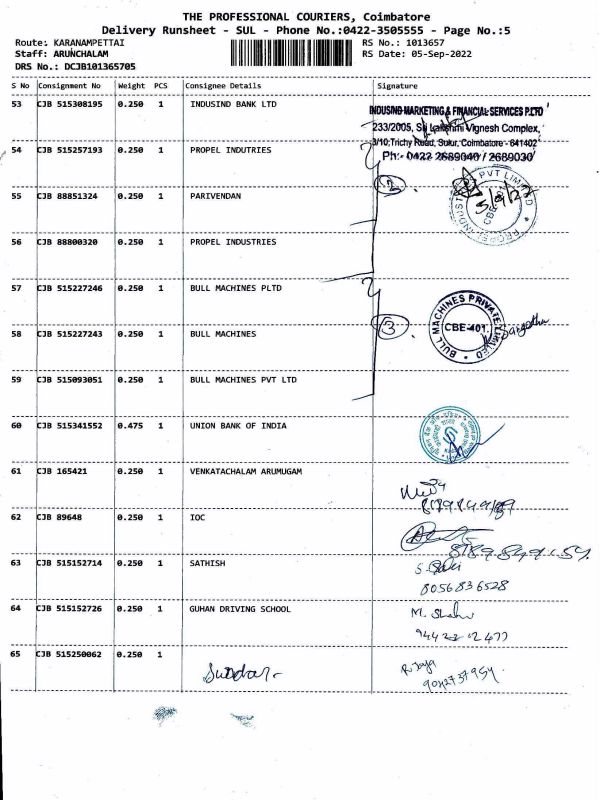 THE PROFESSIONAL COURIERS, Coimbatore
Delivery Runsheet - SUL - Phone No.:0422-3505555 - Page No.:5
Route: KARANAMPETTAI RS No.: 1013657
Staff: ARUNCHALAM RS Date: 05-Sep-2022
DRS No.: DCJB101365705
S No Consignment No Weight PCS Consignee Details Signature
53 CJB 515308195 0.250 1 INDUSIND BANK LTD
INDUSIND MARKETING & FINANCIAL SERVICES P.LTD
233/2005, Sri Lakshmi Vignesh Complex,
3/10, Trichy Road, Sulur, Coimbatore - 641402
Ph:- 0422 2689040 / 2689030
54 CJB 515257193 0.250 1 PROPEL INDUTRIES
2
PROPEL INDUSTRIES PVT LIMITED
CBE-401
55 CJB 88851324 0.250 1 PARIVENDAN
56 CJB 88800320 0.250 1 PROPEL INDUSTRIES
57 CJB 515227246 0.250 1 BULL MACHINES PLTD
58 CJB 515227243 0.250 1 BULL MACHINES
3
BULL MACHINES PRIVATE LIMITED
CBE-401.
59 CJB 515093051 0.250 1 BULL MACHINES PVT LTD
60 CJB 515341552 0.475 1 UNION BANK OF INDIA
61 CJB 165421 0.250 1 VENKATACHALAM ARUMUGAM
62 CJB 89648 0.250 1 IOC
63 CJB 515152714 0.250 1 SATHISH
8056836528
64 CJB 515152726 0.250 1 GUHAN DRIVING SCHOOL
65 CJB 515250062 0.250 1
Sundar